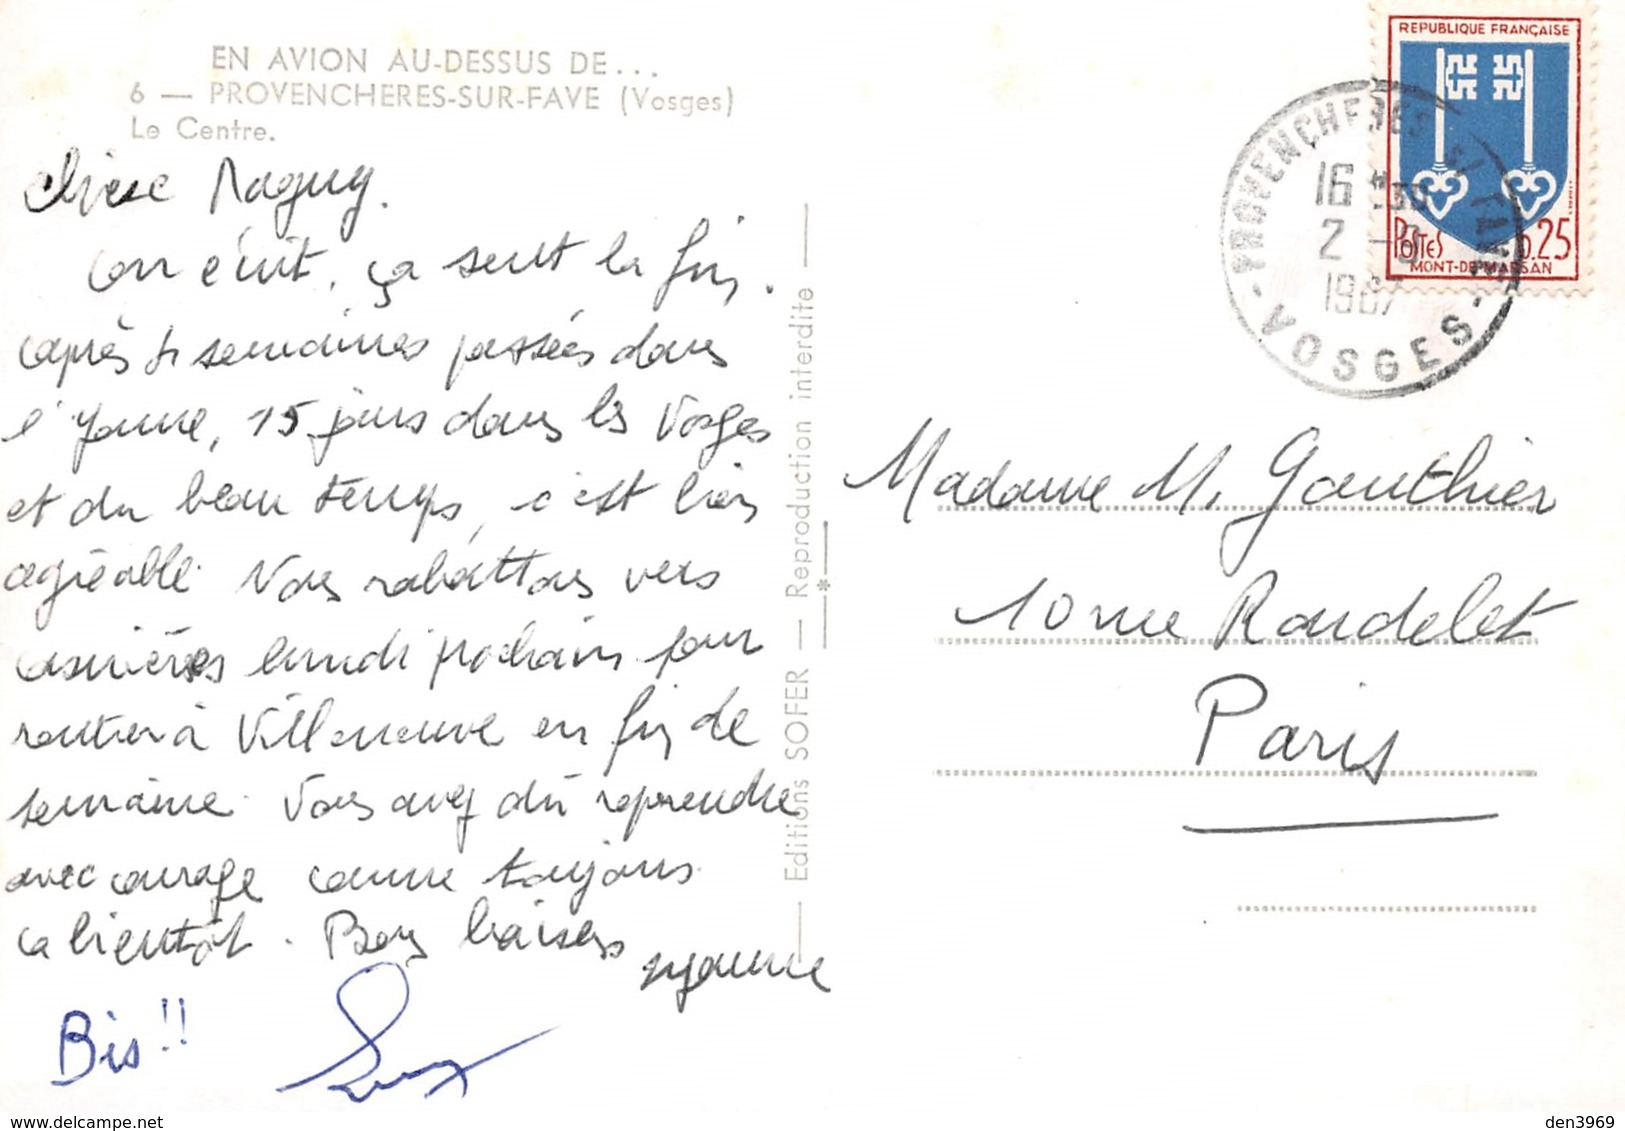 EN AVION AU-DESSUS DE...
6 — PROVENCHERES-SUR-FAVE (Vosges)
Le Centre.
chère Maguy.
on écrit, ça sent la fin.
après semaines passées dans
l'Yonne, 15 jours dans les Vosges
et du beau temps, c'est bien
agréable. Nous rabattons vers
Asnières lundi prochain pour
rentrer à Villeneuve en fin de
semaine. Vous avez dû reprendre
avec courage comme toujours
à bientôt. Bons baisers
Bis!!
Editions SOFER — Reproduction interdite
REPUBLIQUE FRANÇAISE
POSTES 0.25
MONT-DE-MARSAN
PROVENCHERES S/ FAVE
16 H 30
2
1967
- VOSGES -
Madame M. Gauthier
10 rue Rondelet
Paris
den3969